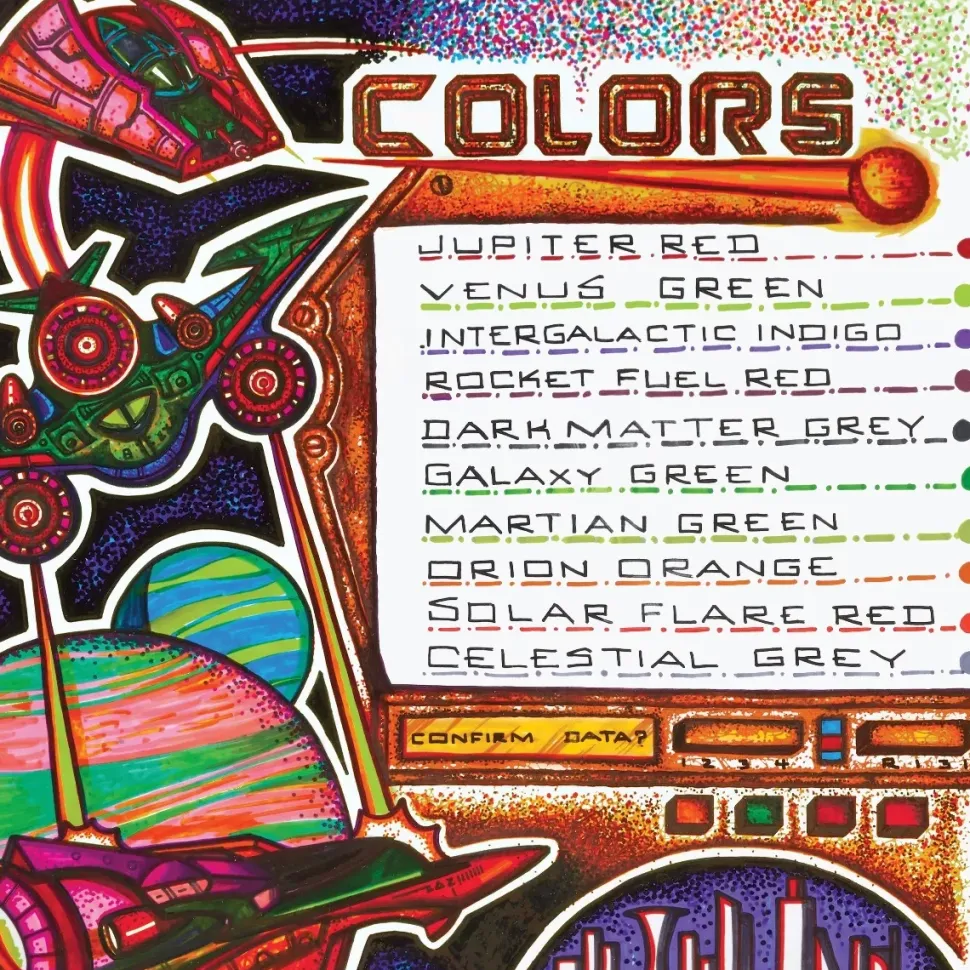 COLORS
JUPITER RED
VENUS GREEN
INTERGALACTIC INDIGO
ROCKET FUEL RED
DARK MATTER GREY
GALAXY GREEN
MARTIAN GREEN
ORION ORANGE
SOLAR FLARE RED
CELESTIAL GREY
CONFIRM DATA?